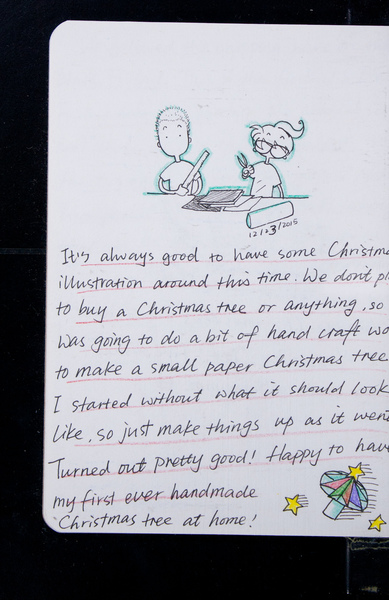 12/23/2015
It's always good to have some Christma
illustration around this time. We don't pl
to buy a Christmas tree or anything, so
was going to do a bit of hand craft wo
to make a small paper Christmas tree
I started without what it should look
like, so just make things up as it went
Turned out pretty good! Happy to have
my first ever handmade
Christmas tree at home!